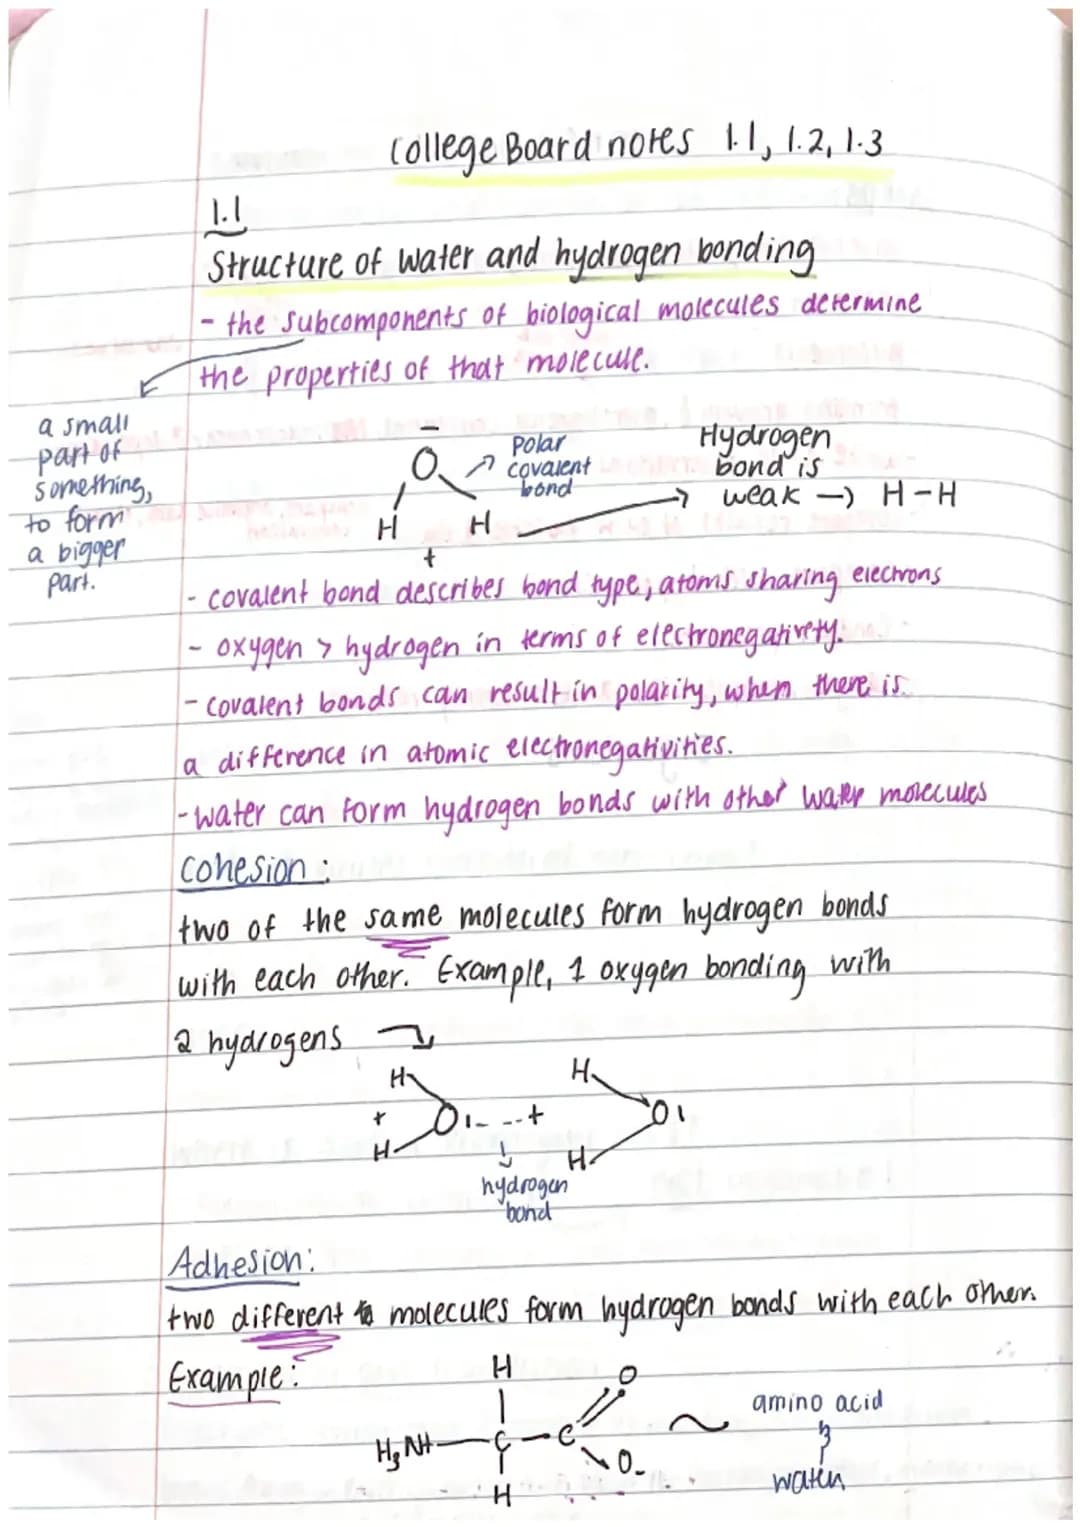 College Board notes 1.1, 1.2, 1.3
1.1
Structure of water and hydrogen bonding
- the subcomponents of biological molecules determine
the properties of that molecule.
a small
part of
something,
to form
a bigger
part.
-
O
H H
+
Polar
covalent
bond
Hydrogen
bond is
weak → H-H
- covalent bond describes bond type, atoms sharing electrons
- oxygen > hydrogen in terms of electronegativety.
- covalent bonds can result in polarity, when there is
a difference in atomic electronegativities.
- water can form hydrogen bonds with other water molecules
Cohesion:
two of the same molecules form hydrogen bonds
with each other. Example, 1 oxygen bonding with
2 hydrogens
H H
+ O - --- + O
H H
hydrogen
bond
Adhesion:
two different molecules form hydrogen bonds with each other.
Example:
H O
H3N+ - C - C
H O-
amino acid
&
water